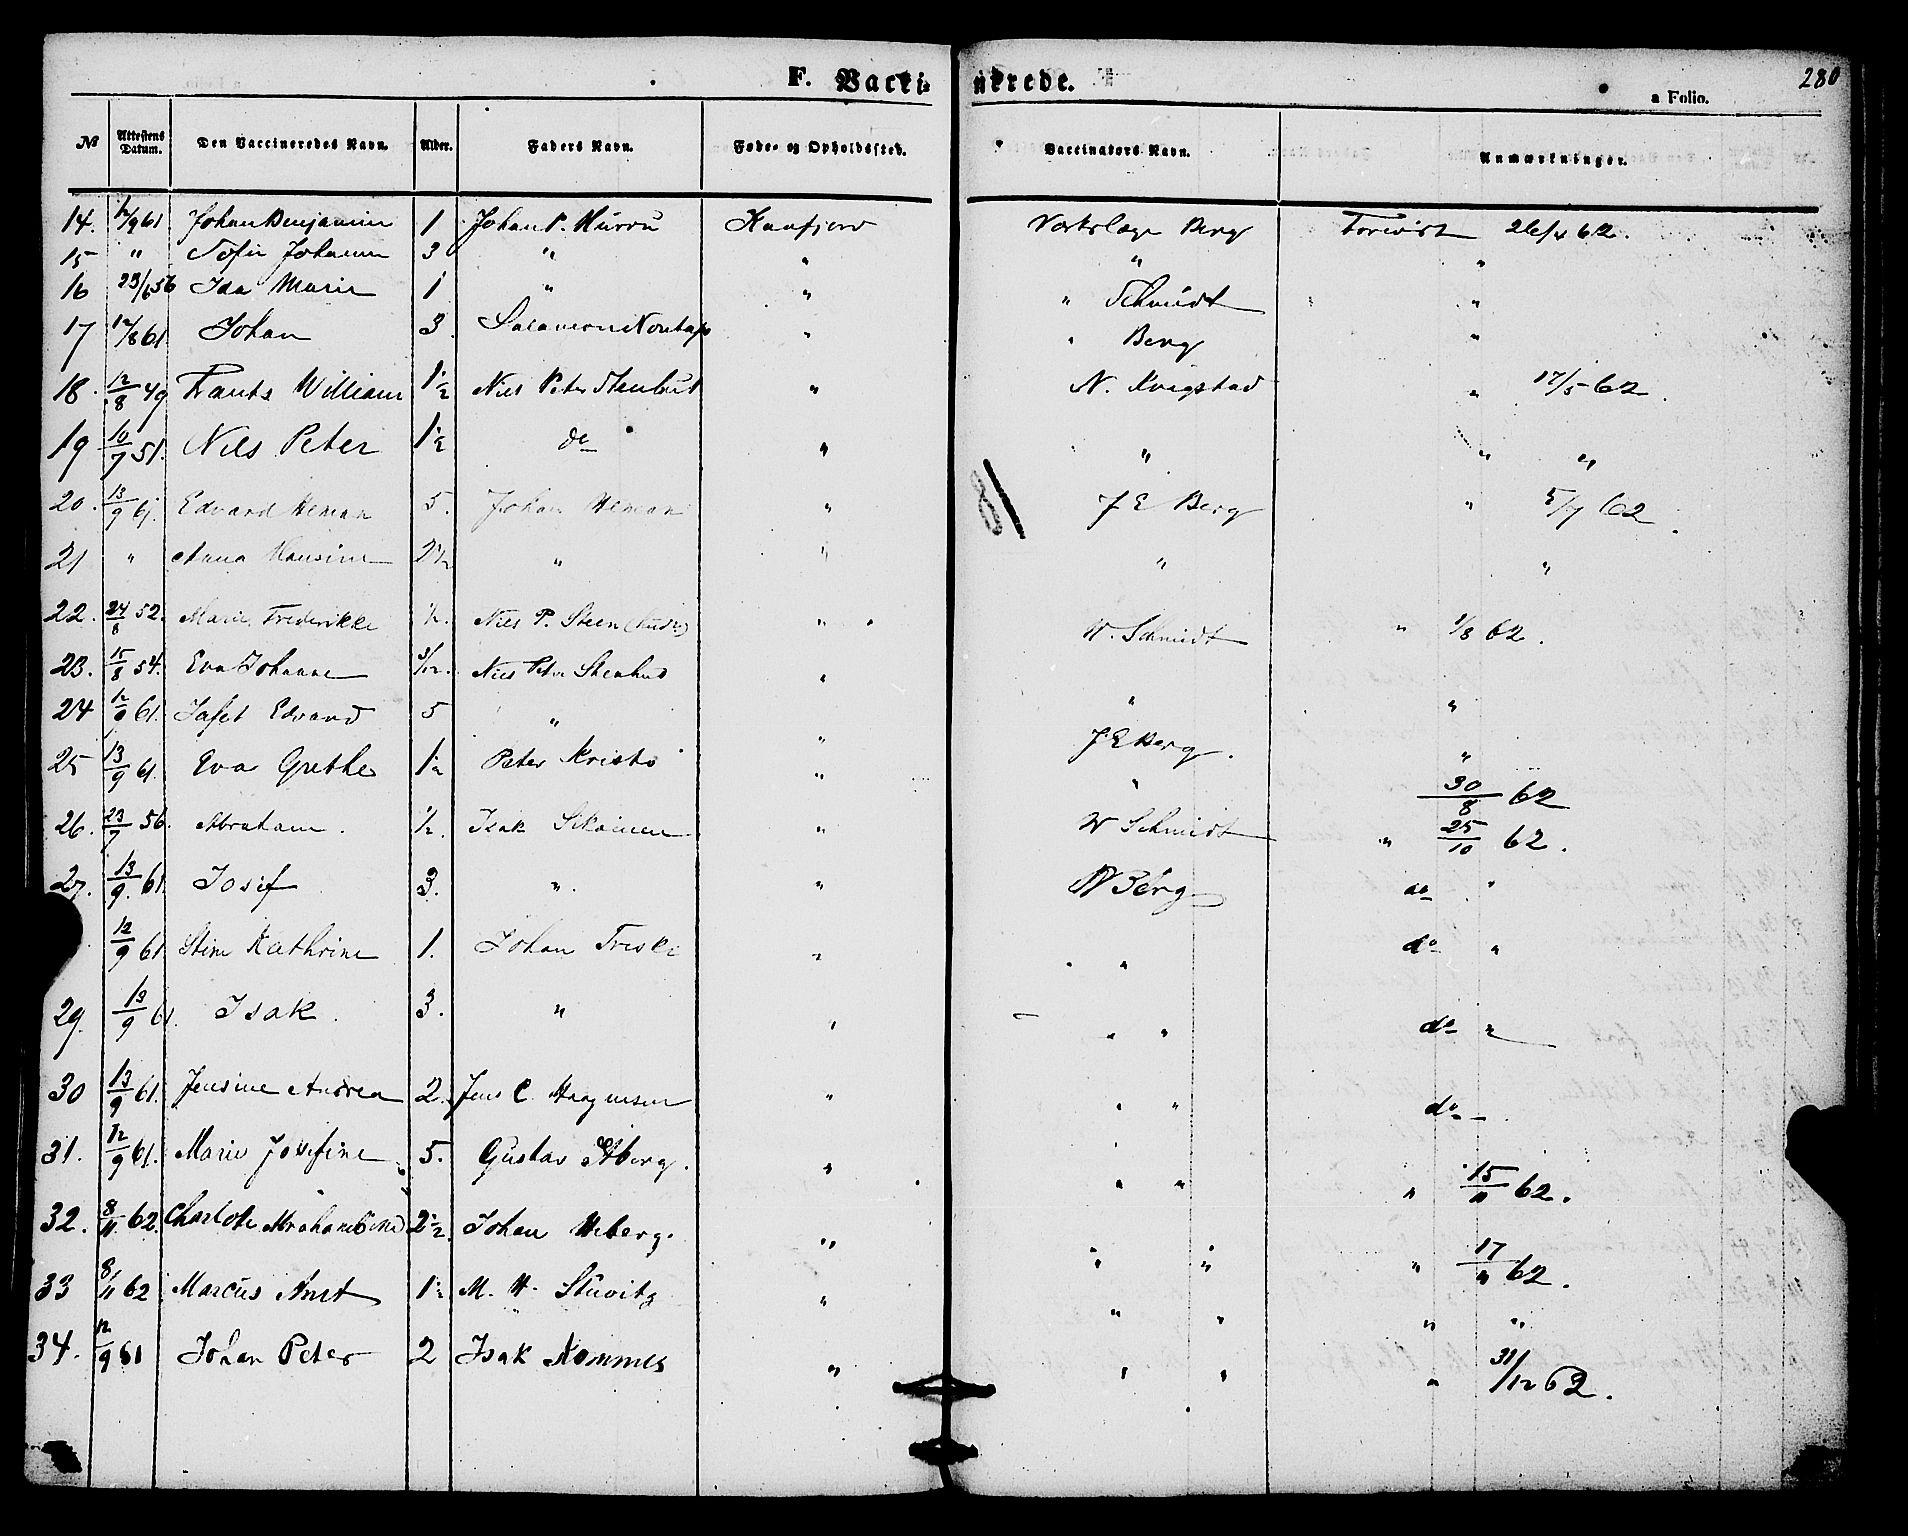 F. Vaccinerede.
280
a Folio.
№ Attestens Datum. Den Vaccineredes Navn. Alder. Faders Navn. Føde- og Opholdssted. Vaccinators Navn. Anmærkninger.
14. 12/9 61 Johan Benjamin 1 Johan P. Murru Kaafjord Berg 26/4 62.
15 " Sofie Johanne 3 " " " "
16 23/6 56 Ida Marie 1 " " " Schmidt "
17 12/8 61 Johan 3. " " Berg "
18. 12/8 49 Frants William 1½ Niels Peter " N. Kvigstad " 17/5 62.
19 10/7 51. Niels Peter 1½ do " " " "
20. 13/9 61. Edvard Heman 5. Johan Heman " J E Berg " 5/7 62.
21 " Anna Hansine 2½ " " " "
22. 24/8 52. Marie Frederikke ½. Niels P. Steen " W. Schmidt " 1/8 62.
23. 15/8 54. Eva Johanne 3/12. Niels Peter " " "
24 12/9 61. Jafet Edvard 5 " " J E Berg. "
25 13/9 61. Eva Grethe 1½ Peter Kristo " " 30/8 62
26. 23/7 56. Abraham. ½. Isak " W Schmidt " 25/10 62.
27. 13/9 61 Josef 3. " " Berg do "
12/9 61 Stine Kathrine 1. Johan " " do "
29. 13/9 61. Isak. 3. " " " " do "
30 13/9 61. Jensine Andrea 2. Jens C. " " " do
31. 12/9 61. Marie Josefine 5. Gustav " " " " 15/11 62.
32. 8/11 62. Charlotte 2½. Johan " " " " 17/11 62.
33 8/11 62 Marcus 1½ M. H. " " " " "
34. 12/9 61 Johan Peter 2 Isak " " " " 31/12 62.